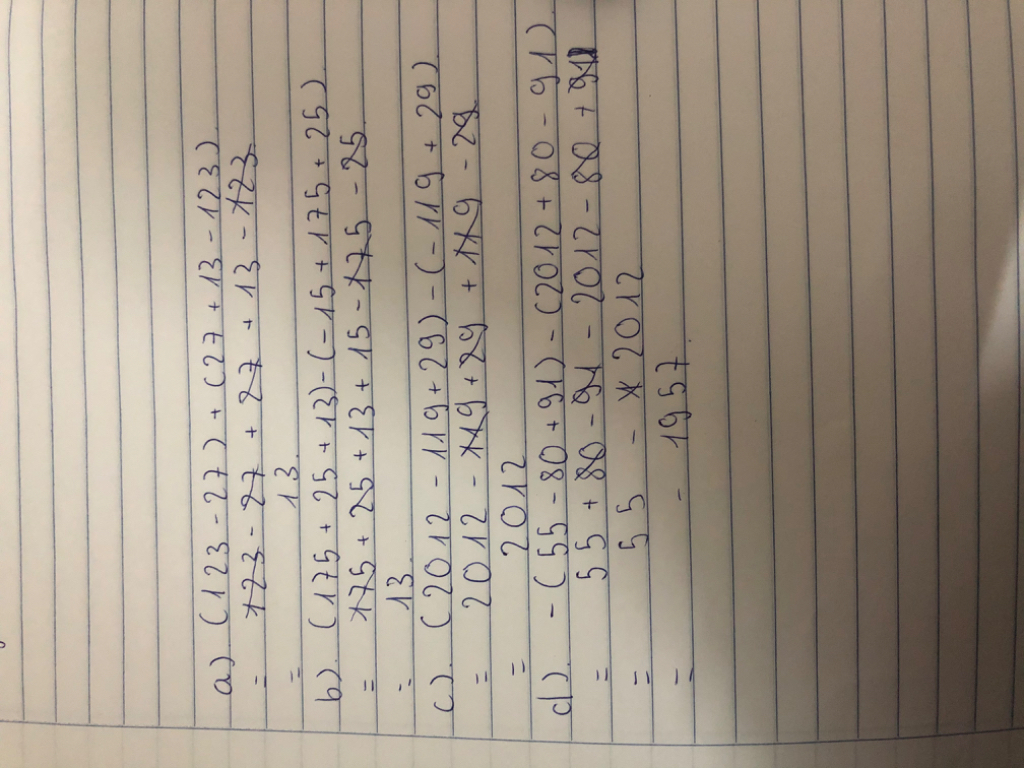 a) (123 - 27) + (27 + 13 - 123)
= 123 - 27 + 27 + 13 - 123
= 13.
b) (175 + 25 + 13) - (-15 + 175 + 25)
= 175 + 25 + 13 + 15 - 175 - 25
= 13
c) (2012 - 119 + 29) - (-119 + 29)
= 2012 - 119 + 29 + 119 - 29
= 2012
d) - (55 - 80 + 91) - (2012 + 80 - 91)
= 55 + 80 - 91 - 2012 - 80 + 91
= 55 - 2012
= - 1957